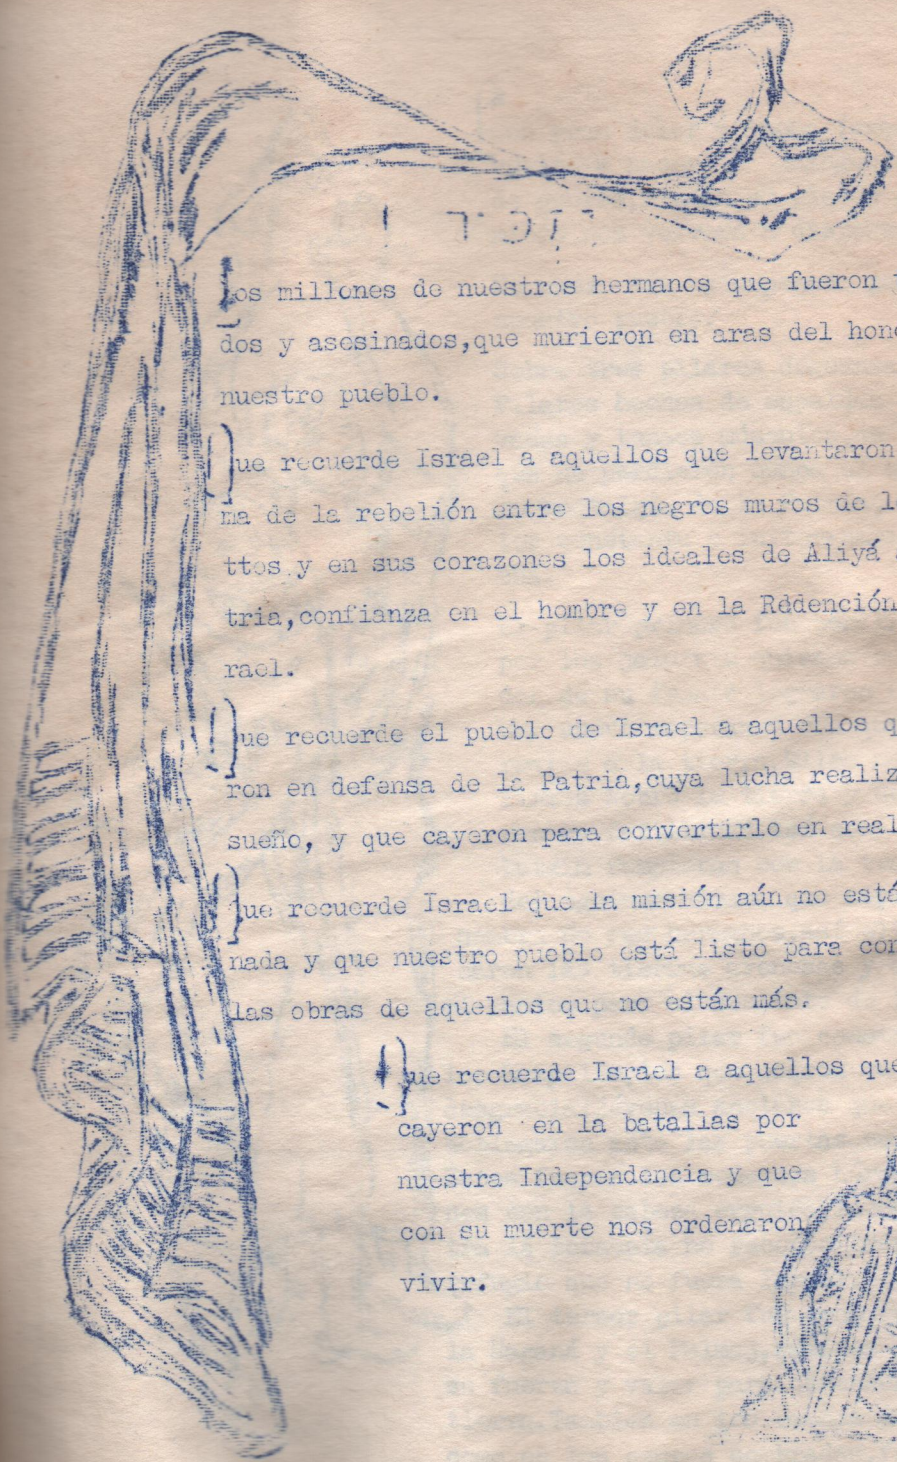 Los millones de nuestros hermanos que fueron
dos y asesinados,que murieron en aras del hono
nuestro pueblo.
Que recuerde Israel a aquellos que levantaron
ma de la rebelión entre los negros muros de l
ttos y en sus corazones los ideales de Aliyá
tria,confianza en el hombre y en la Rddención
rael.
Que recuerde el pueblo de Israel a aquellos q
ron en defensa de la Patria,cuya lucha realiz
sueño, y que cayeron para convertirlo en real
Que recuerde Israel que la misión aún no está
nada y que nuestro pueblo está listo para con
las obras de aquellos que no están más.
Que recuerde Israel a aquellos que
cayeron en la batallas por
nuestra Independencia y que
con su muerte nos ordenaron
vivir.